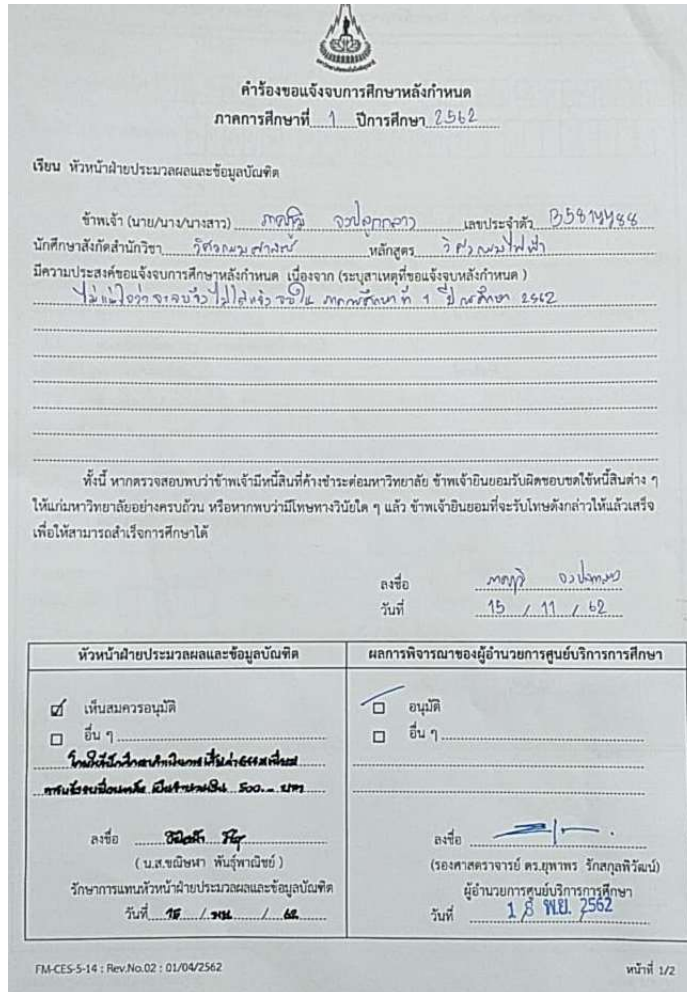 คำร้องขอแจ้งจบการศึกษาหลังกำหนด
ภาคการศึกษาที่ 1 ปีการศึกษา 2562
เรียน หัวหน้าฝ่ายประมวลผลและข้อมูลบัณฑิต
ข้าพเจ้า (นาย/นาง/นางสาว) เลขประจำตัว
นักศึกษาสังกัดสำนักวิชา วิศวกรรมศาสตร์ หลักสูตร วิศวกรรมไฟฟ้า
มีความประสงค์ขอแจ้งจบการศึกษาหลังกำหนด เนื่องจาก (ระบุสาเหตุที่ขอแจ้งจบหลังกำหนด )
ไม่แน่ใจว่าจะจบ ภาคการศึกษาที่ 1 ปีการศึกษา 2562
ทั้งนี้ หากตรวจสอบพบว่าข้าพเจ้ามีหนี้สินที่ค้างชำระต่อมหาวิทยาลัย ข้าพเจ้ายินยอมรับผิดชอบชดใช้หนี้สินต่าง ๆ
ให้แก่มหาวิทยาลัยอย่างครบถ้วน หรือหากพบว่ามีโทษทางวินัยใด ๆ แล้ว ข้าพเจ้ายินยอมที่จะรับโทษดังกล่าวให้แล้วเสร็จ
เพื่อให้สามารถสำเร็จการศึกษาได้
ลงชื่อ
วันที่ 15 / 11 / 62
หัวหน้าฝ่ายประมวลผลและข้อมูลบัณฑิต
เห็นสมควรอนุมัติ
อื่น ๆ
โดยให้นักศึกษาดำเนินการ
เป็นจำนวนเงิน 500.- บาท
ลงชื่อ
( น.ส.ขณิษฐา พันธุ์พาณิชย์ )
รักษาการแทนหัวหน้าฝ่ายประมวลผลและข้อมูลบัณฑิต
วันที่ 15 / พย / 62
ผลการพิจารณาของผู้อำนวยการศูนย์บริการการศึกษา
อนุมัติ
อื่น ๆ
ลงชื่อ
(รองศาสตราจารย์ ดร.ยุพาพร รักสกุลพิวัฒน์)
ผู้อำนวยการศูนย์บริการการศึกษา
วันที่ 18 พ.ย. 2562
FM-CES-5-14 : Rev.No.02 : 01/04/2562
หน้าที่ 1/2